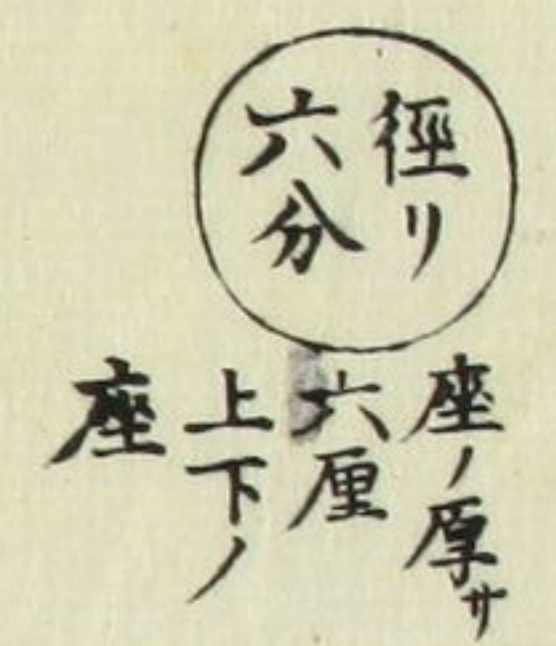 徑リ
六分
座ノ厚サ
六厘
上下ノ
座